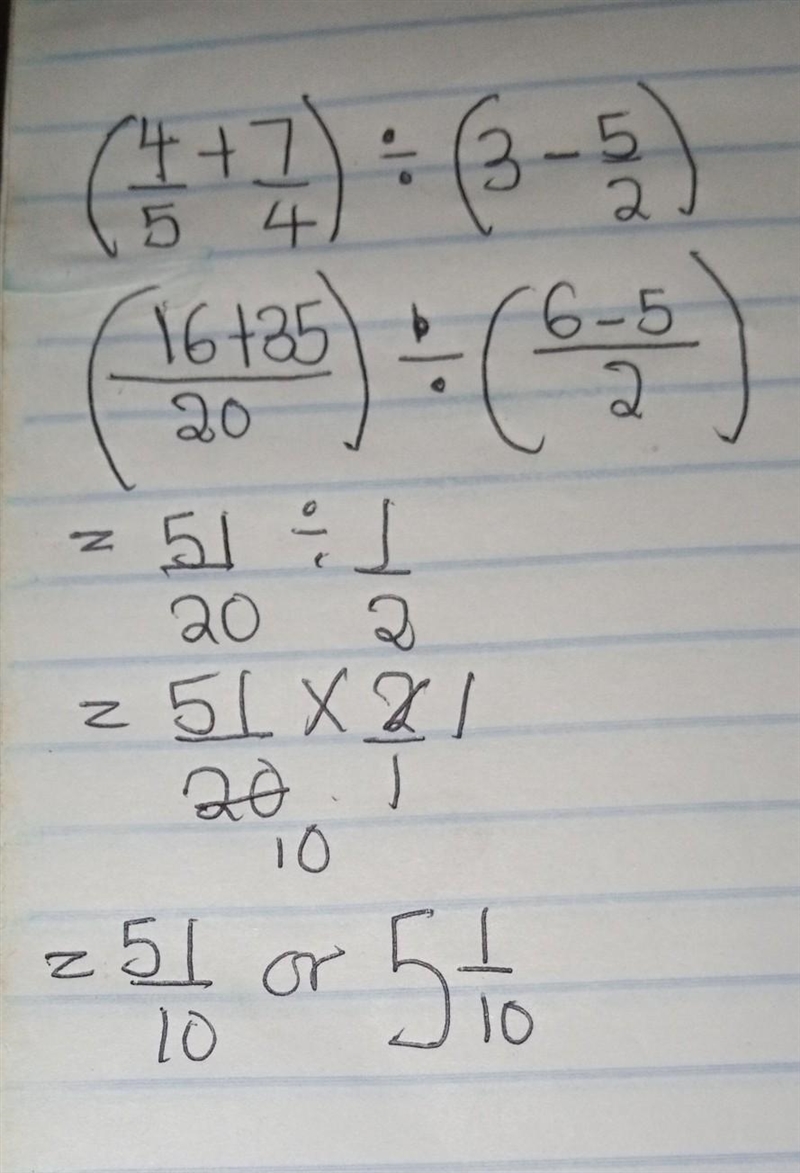 (4/5 + 7/4) ÷ (3 - 5/2)
(16+35/20) ÷ (6-5/2)
= 51/20 ÷ 1/2
= 51/20 × 2/1 1
10
= 51/10 or 5 1/10